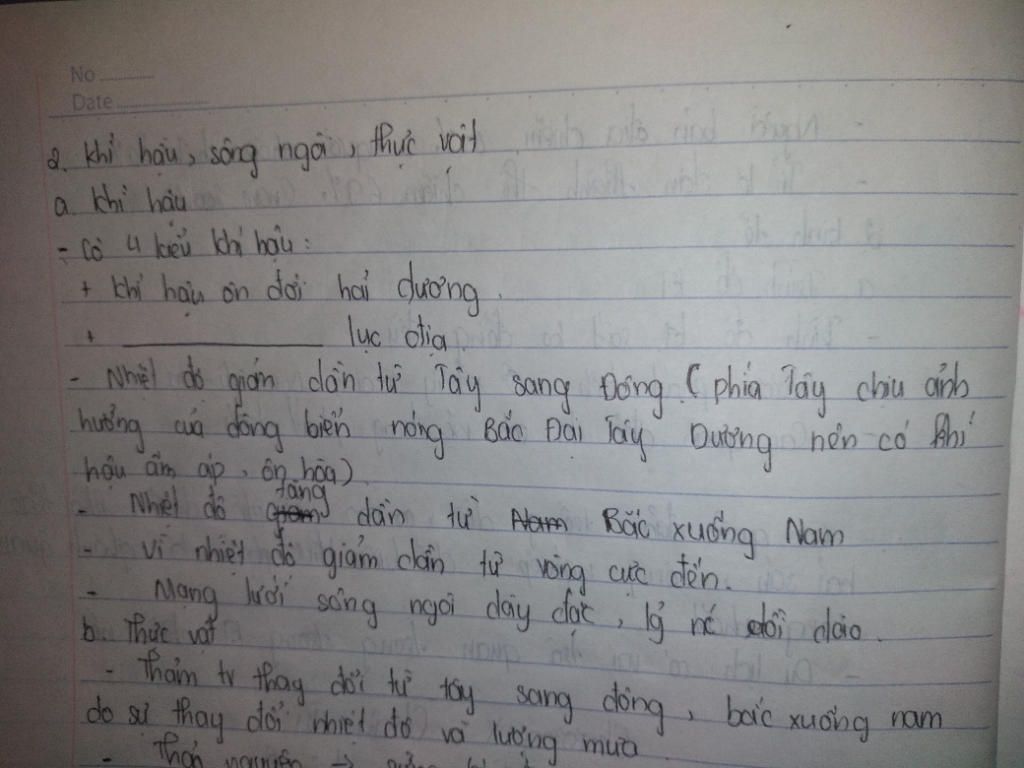 No
Date
2. Khí hậu, sông ngòi, thực vật
a. Khí hậu
- Có 4 kiểu khí hậu:
+ Khí hậu ôn đới hải dương.
+ ________ lục địa.
- Nhiệt độ giảm dần từ Tây sang Đông. (phía Tây chịu ảnh
hưởng của dòng biển nóng Bắc Đại Tây Dương nên có khí
hậu ấm áp, ôn hòa)
- Nhiệt độ tăng dần từ Bắc xuống Nam
- Vì nhiệt độ giảm dần từ vòng cực đến.
- Mạng lưới sông ngòi dày đặc, lg nc dồi dào.
b. Thực vật
- Thảm tv thay đổi từ tây sang đông, bắc xuống nam
do sự thay đổi nhiệt độ và lượng mưa
- Thảo nguyên →